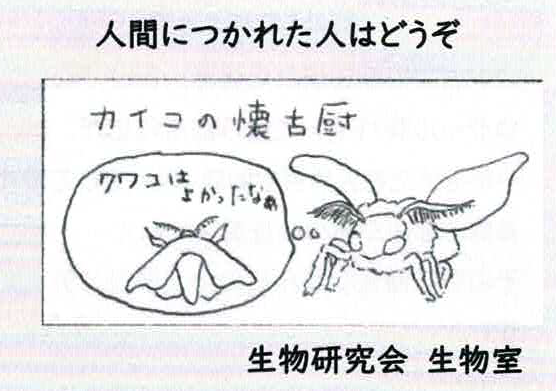 人間につかれた人はどうぞ
カイコの懐古厨
クワコは
よかったなぁ
生物研究会 生物室